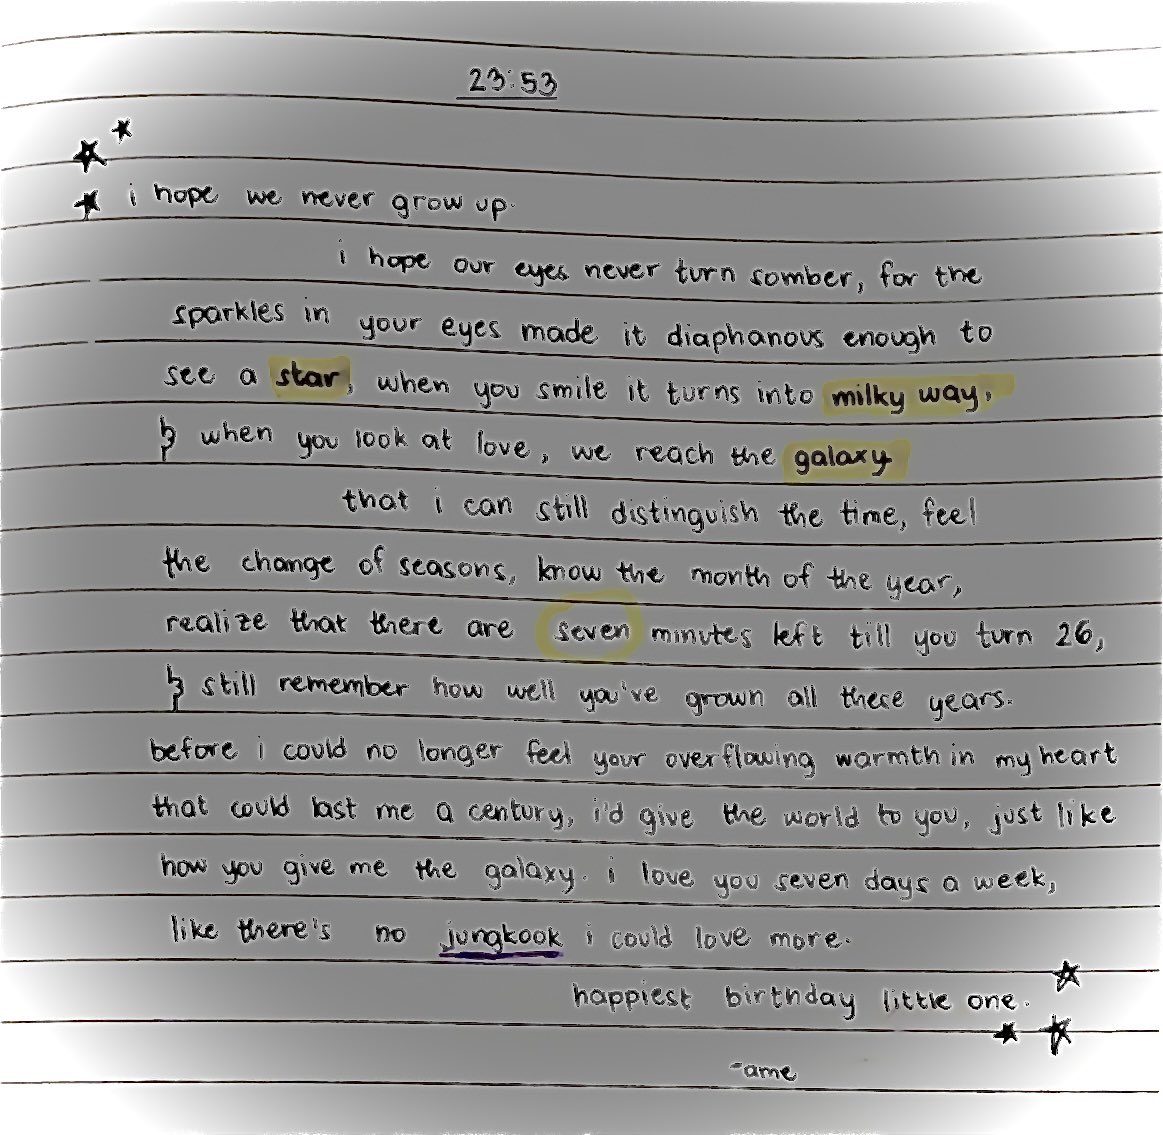 23:53
i hope we never grow up.
i hope our eyes never turn somber, for the
sparkles in your eyes made it diaphanous enough to
see a star, when you smile it turns into milky way,
& when you look at love, we reach the galaxy
that i can still distinguish the time, feel
the change of seasons, know the month of the year,
realize that there are seven minutes left till you turn 26,
& still remember how well you've grown all these years.
before i could no longer feel your overflowing warmth in my heart
that could last me a century, i'd give the world to you, just like
how you give me the galaxy. i love you seven days a week,
like there's no jungkook i could love more.
happiest birthday little one.
-ame